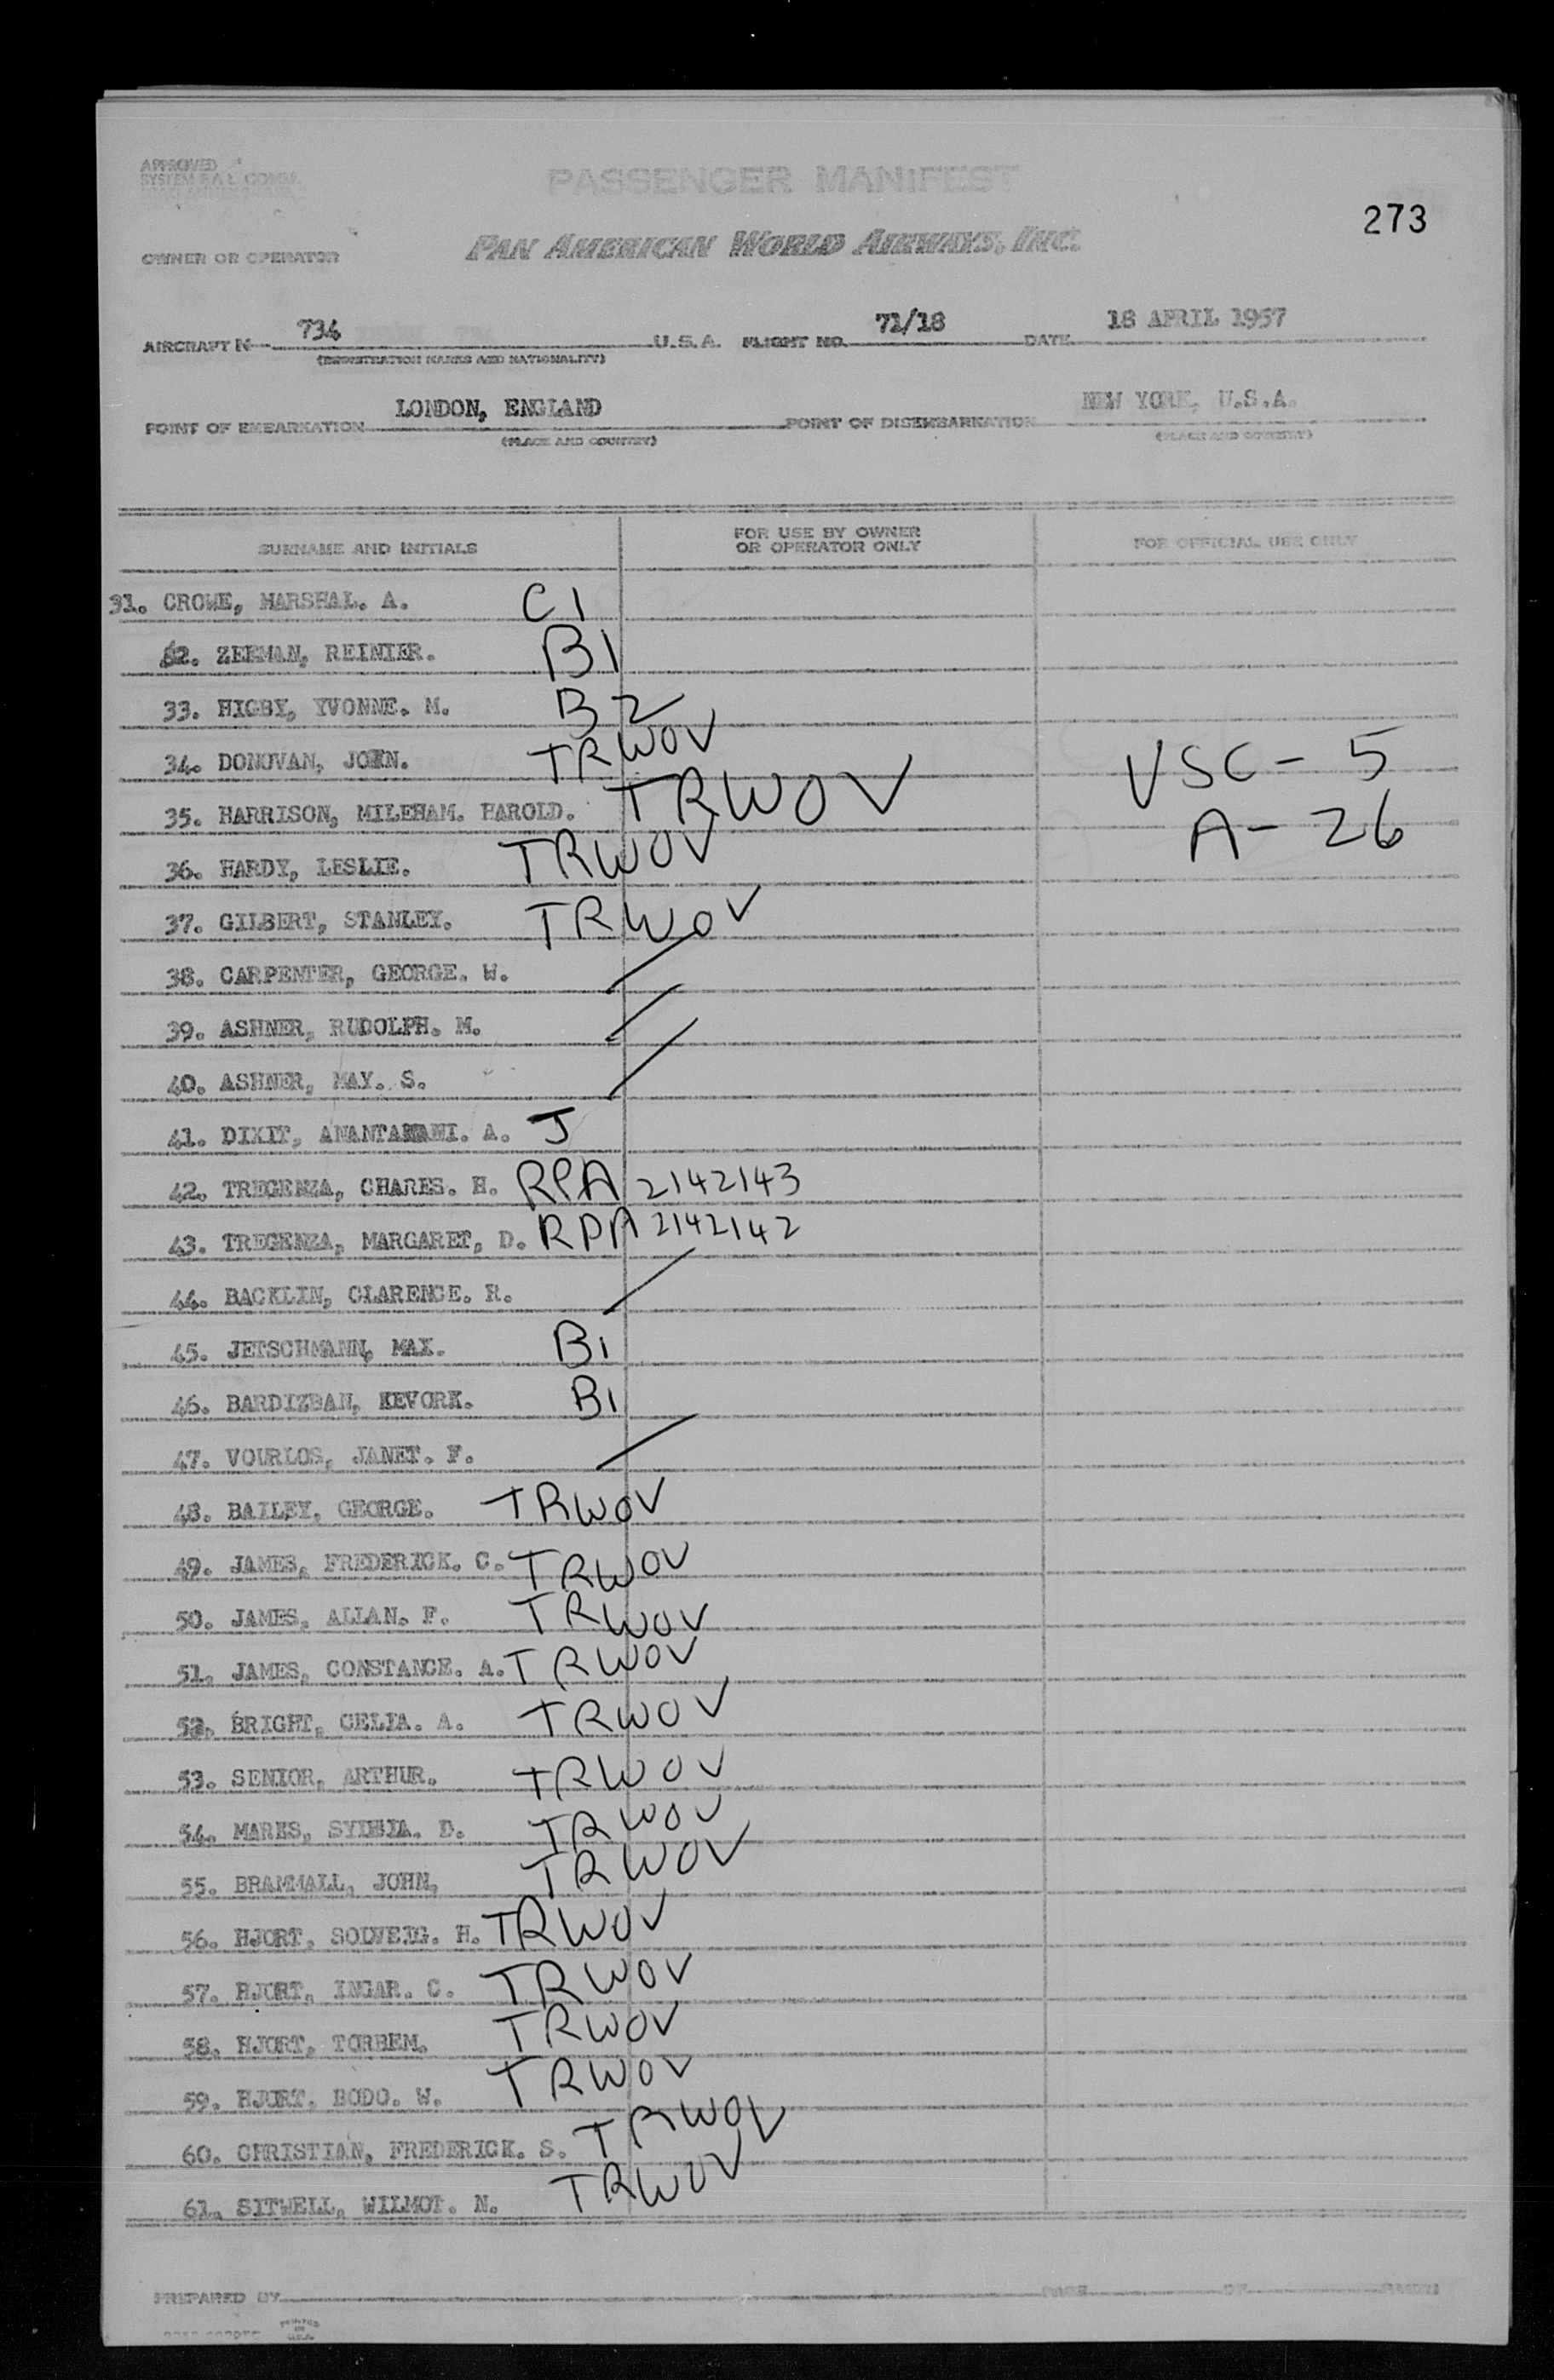 APPROVED
SYSTEM F.A.L. COMM.
PASSENGER MANIFEST
273
PAN AMERICAN WORLD AIRWAYS, INC.
OWNER OR OPERATOR
AIRCRAFT N 734 U.S.A. FLIGHT NO. 71/18 DATE 18 APRIL 1957
(REGISTRATION MARKS AND NATIONALITY)
POINT OF EMBARKATION LONDON, ENGLAND POINT OF DISEMBARKATION NEW YORK, U.S.A.
(PLACE AND COUNTRY) (PLACE AND COUNTRY)
SURNAME AND INITIALS FOR USE BY OWNER OR OPERATOR ONLY FOR OFFICIAL USE ONLY
31. CROWE, MARSHAL. A. C1
32. ZEEMAN, REINIER. B1
33. HIGBY, YVONNE. M. B2
34. DONOVAN, JOHN. TRWOV VSC - 5
35. HARRISON, MILEHAM. HAROLD. TRWOV A - 26
36. HARDY, LESLIE. TRWOV
37. GILBERT, STANLEY. TRWOV
38. CARPENTER, GEORGE. W.
39. ASHNER, RUDOLPH. M.
40. ASHNER, MAY. S.
41. DIXIT, A. J
42. TREGENZA, CHARES. H. RPA 2142143
43. TREGENZA, MARGARET, D. RPA 2142142
44. BACKLIN, CLARENCE. R.
45. JETSCHMANN, MAX. B1
46. BARDIZBAN, KEVORK. B1
47. VOURLOS, JANET. F.
48. BAILEY, GEORGE. TRWOV
49. JAMES, FREDERICK. C. TRWOV
50. JAMES, ALLAN. F. TRWOV
51. JAMES, CONSTANCE. A. TRWOV
52. BRIGHT, CELIA. A. TRWOV
53. SENIOR, ARTHUR. TRWOV
54. MARES, D. TRWOV
55. BRAMMALL, JOHN, TRWOV
56. HJORT, SOLVEIG. H. TRWOV
57. HJORT, INGAR. C. TRWOV
58. HJORT, TORBEM. TRWOV
59. HJORT. BODO. W. TRWOV
60. CHRISTIAN, FREDERICK. S. TRWOV
61. SITWELL, WILMOT. N. TRWOV
PREPARED BY PAGE OF
PRINTED IN U.S.A.